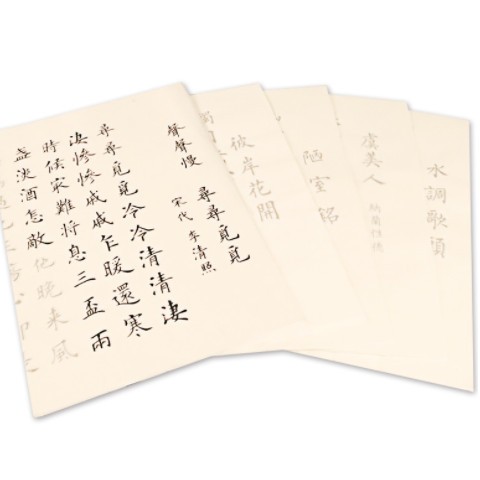 聲聲慢 尋尋覓覓
宋代 李清照
尋尋覓覓冷冷清清淒
淒慘慘戚戚乍暖還寒
時候最難將息三盃兩
盞淡酒怎敵他晚來風
彼岸花開
陋室銘
虞美人 納蘭性德
水調歌頭